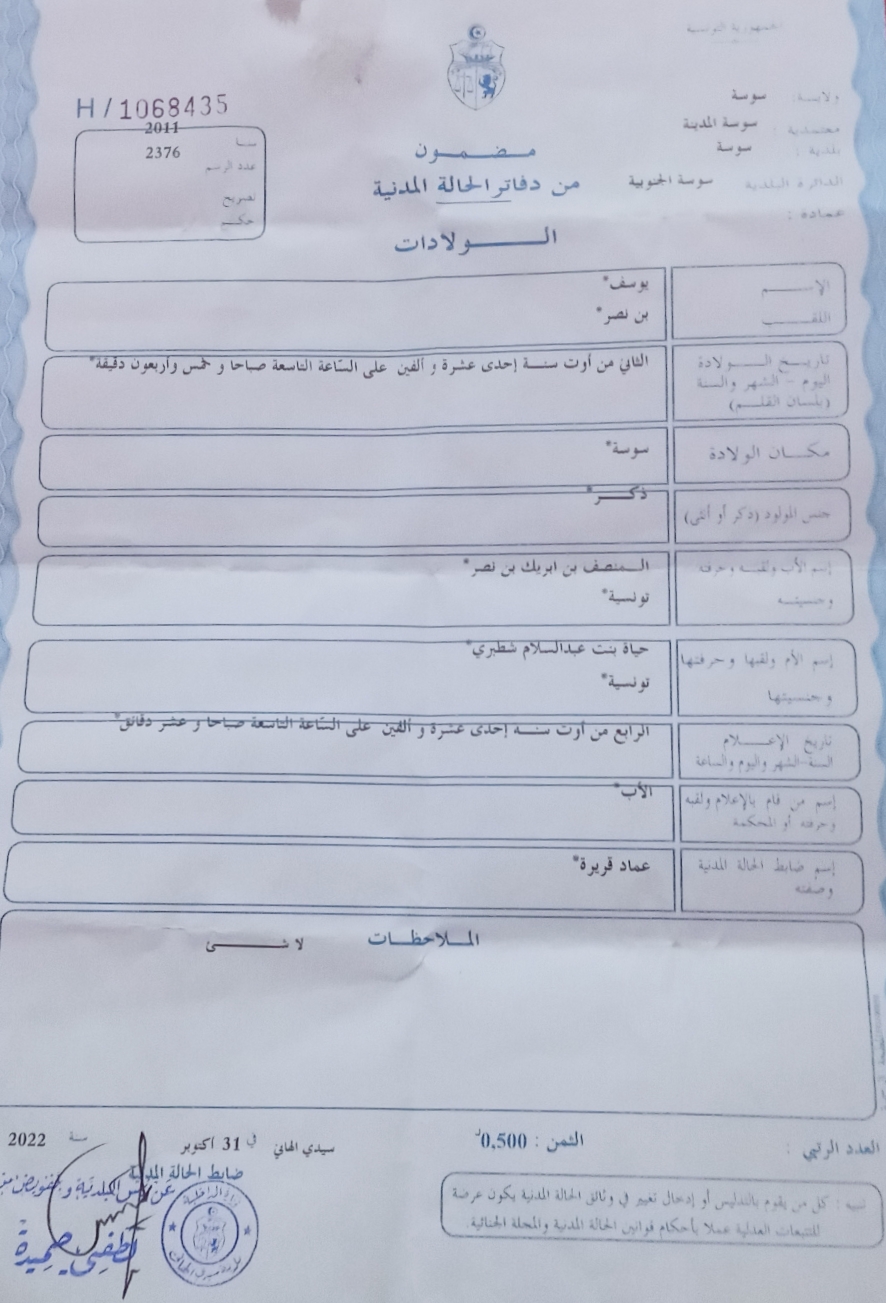 الجمهورية التونسية
ولاية: سوسة
معتمدية: سوسة المدينة
بلدية: سوسة
الدائرة البلدية سوسة الجنوبية
عمادة:
H/1068435
سنة 2011
عدد الرسم 2376
تصريح
حكم
مضمون
من دفاتر الحالة المدنية
الولادات
الإسم يوسف*
اللقب بن نصر*
تاريخ الولادة الثاني من أوت سنة إحدى عشرة و ألفين على السّاعة التاسعة صباحا و خمس وأربعون دقيقة*
اليوم - الشهر والسنة
(بلسان القلم)
مكان الولادة سوسة*
جنس المولود (ذكر أو أنثى) ذكر*
إسم الأب ولقبه وحرفته المنصف بن ابريك بن نصر*
وجنسيته تونسية*
إسم الأم ولقبها وحرفتها حياة بنت عبدالسلام شطبري*
وجنسيتها تونسية*
تاريخ الإعلام الرابع من أوت سنه إحدى عشرة و ألفين على السّاعة التاسعة صباحا و عشر دقائق*
السنة-الشهر واليوم والساعة
إسم من قام بالإعلام ولقبه الأب*
وحرفته أو المحكمة
إسم ضابط الحالة المدنية عماد قريرة*
وصفته
الملاحظات لا شئ
العدد الرتبي : الثمن : 0,500د
سيدي الهاني في 31 أكتوبر سنة 2022
ضابط الحالة المدنية
لطفي حميدة
وزارة الداخلية
تنبيه : كل من يقوم بالتدليس أو إدخال تغيير في وثائق الحالة المدنية يكون عرضة
للتتبعات العدلية عملا بأحكام قوانين الحالة المدنية والمجلة الجنائية.